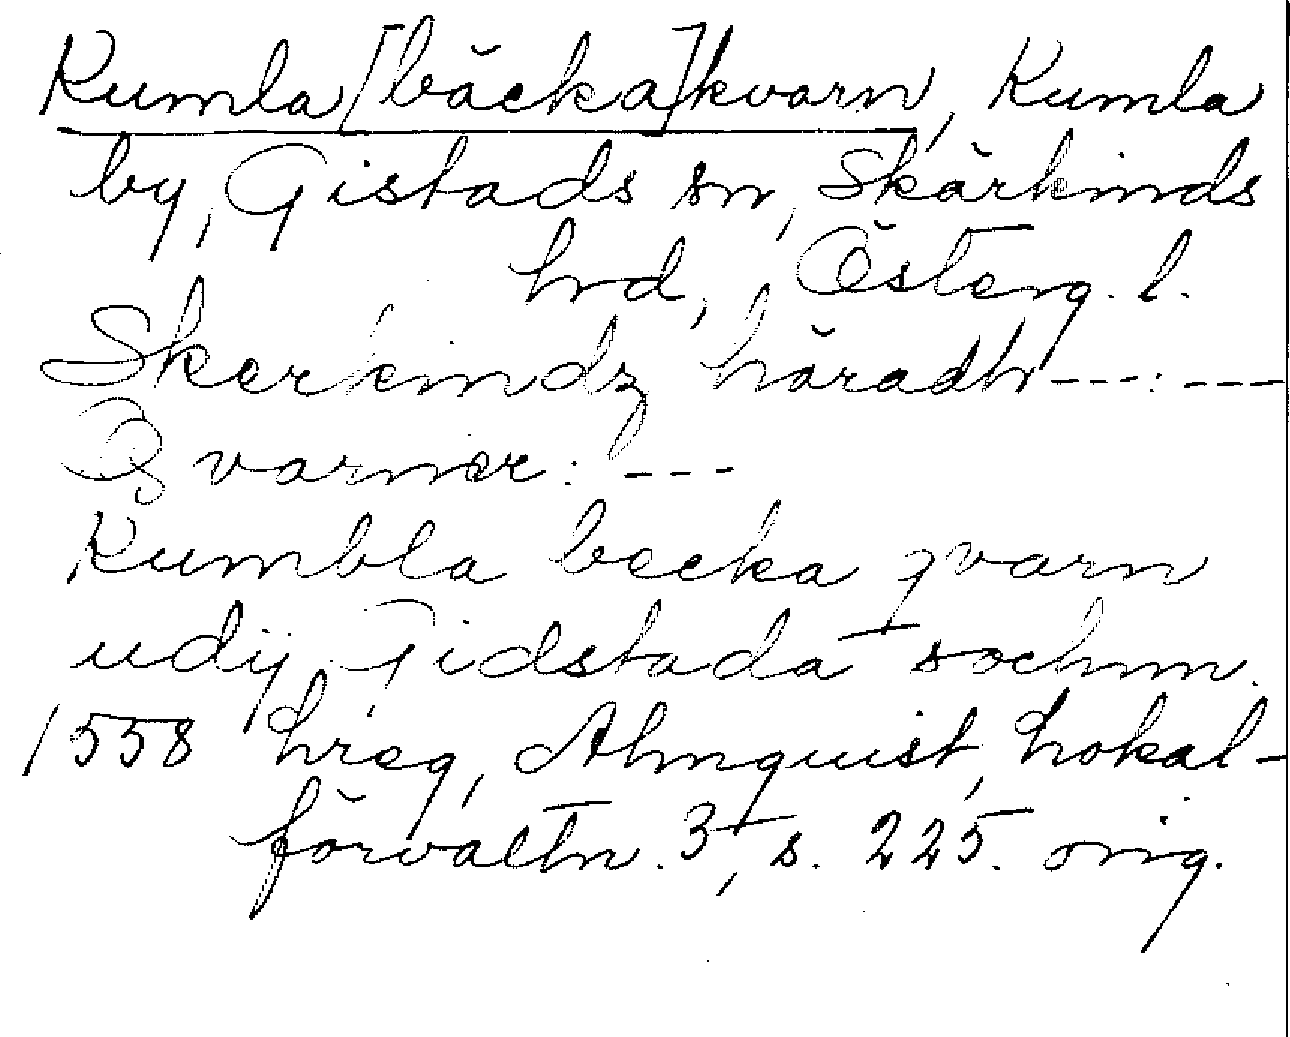 Kumla[bäcka]kvarn, Kumla
by, Gistads sn, Skärkinds
hrd, Österg. l.
Skerkindz häradh---:---
Qvarner: ---
Kumbla becka qvarn
udij Gidstada sochnn.
1558 hreg, Almquist, Lokal-
förvaltn. 3, s. 225. orig.